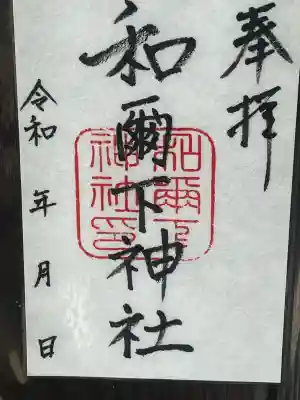 奉拝
和爾下神社
和爾下
神社印
令和 年 月 日